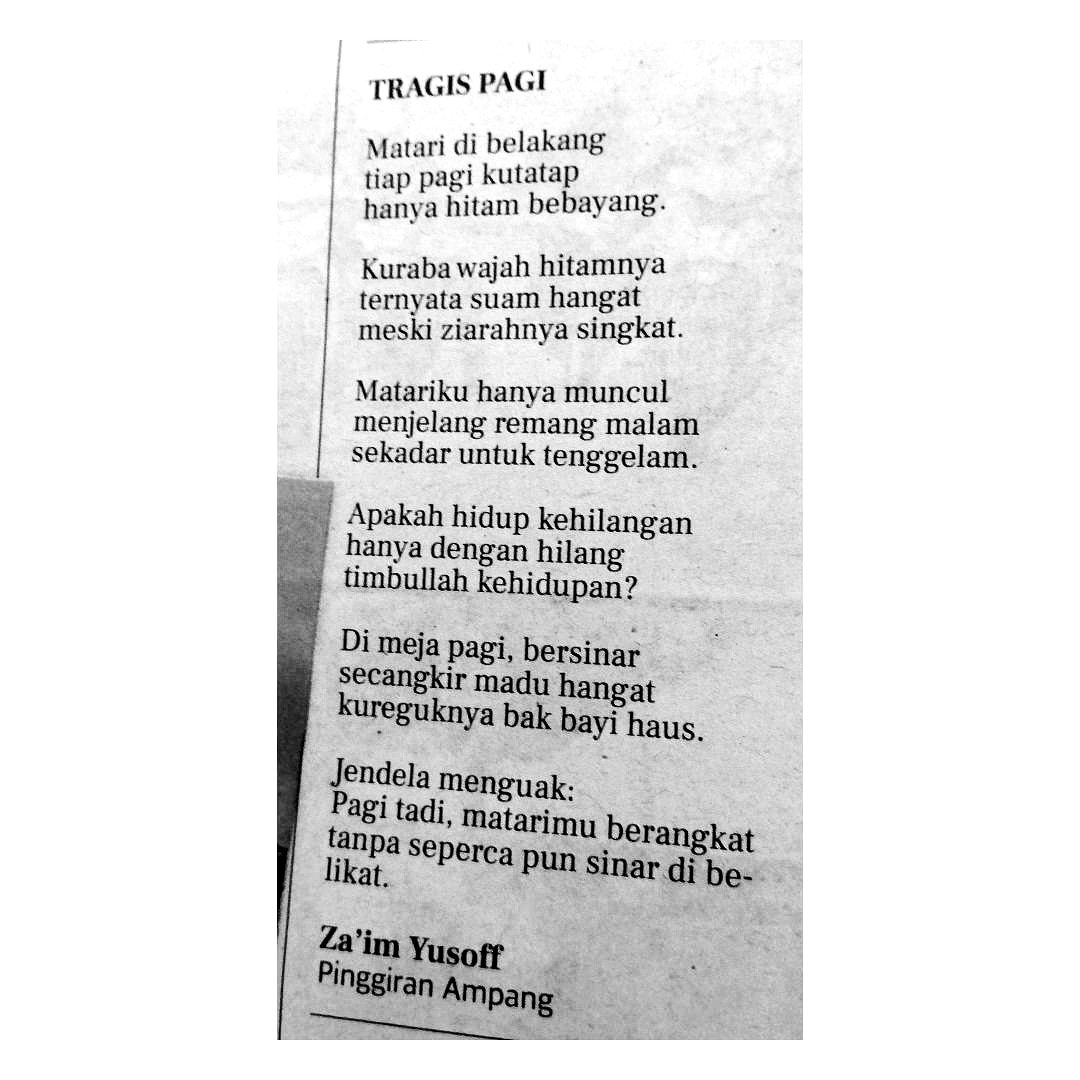 TRAGIS PAGI
Matari di belakang
tiap pagi kutatap
hanya hitam bebayang.
Kuraba wajah hitamnya
ternyata suam hangat
meski ziarahnya singkat.
Matariku hanya muncul
menjelang remang malam
sekadar untuk tenggelam.
Apakah hidup kehilangan
hanya dengan hilang
timbullah kehidupan?
Di meja pagi, bersinar
secangkir madu hangat
kureguknya bak bayi haus.
Jendela menguak:
Pagi tadi, matarimu berangkat
tanpa seperca pun sinar di be-
likat.
Za'im Yusoff
Pinggiran Ampang